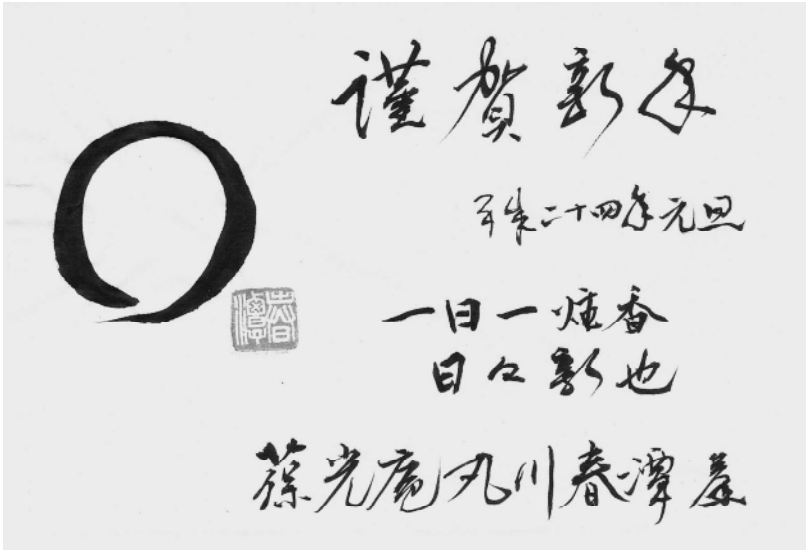 謹賀新年
平成二十四年元旦
一日一炷香
日々新也
葆光庵丸川春潭
春潭